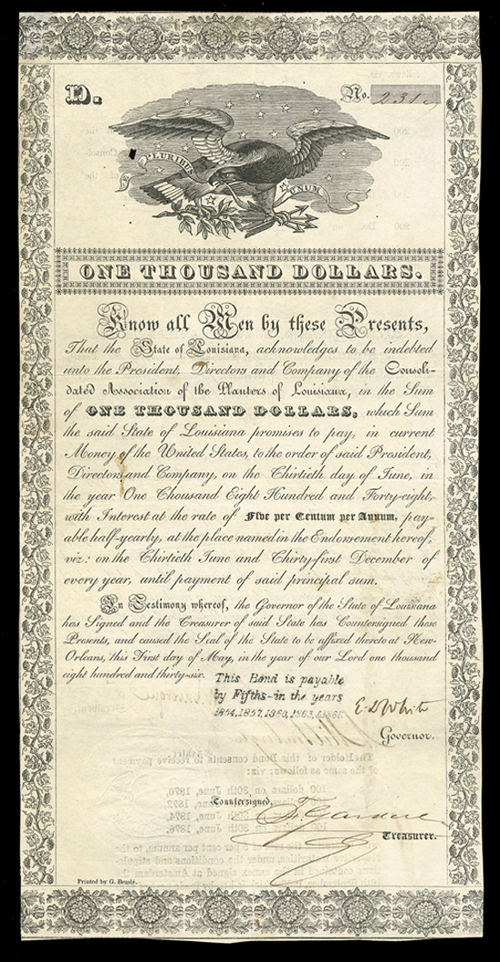 D.
No. 231
PLURIBUS
UNUM
ONE THOUSAND DOLLARS.
Know all Men by these Presents,
That the State of Louisiana, acknowledges to be indebted
unto the President, Directors and Company of the Consoli-
dated Association of the Planters of Louisiana, in the Sum
of ONE THOUSAND DOLLARS, which Sum
the said State of Louisiana promises to pay, in current
Money of the United States, to the order of said President,
Directors and Company, on the Thirtieth day of June, in
the year One Thousand Eight Hundred and Forty-eight,
with Interest at the rate of Five per Centum per Annum, pay-
able half-yearly, at the place named in the Endorsement hereof,
viz: on the Thirtieth June and Thirty-first December of
every year, until payment of said principal sum.
In Testimony whereof, the Governor of the State of Louisiana
has Signed and the Treasurer of said State has Countersigned these
Presents, and caused the Seal of the State to be affixed thereto at New-
Orleans, this First day of May, in the year of our Lord one thousand
eight hundred and thirty-six.
This Bond is payable
by Fifths-in the years
1854, 1857, 1860, 1863, &1866
E D White
Governor.
The Holder of this Bond consents to receive payment
of the same as follows: viz:
100 dollars on 30th June, 1870.
1872.
Countersigned,
30th June, 1874.
30th June, 1876.
F. Gardere
Treasurer.
Printed by G. Bruslé.